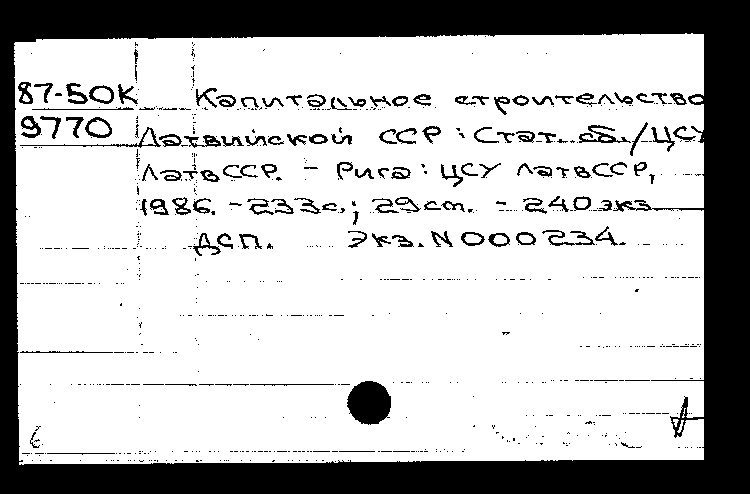 87-50К Капитальное строительство
9770 Латвийской ССР : Стат. сб./ЦСУ
ЛатвССР. - Рига : ЦСУ ЛатвССР,
1986. - 233с.; 29см. - 240 экз.
ДСП. Экз. N 000234.
6